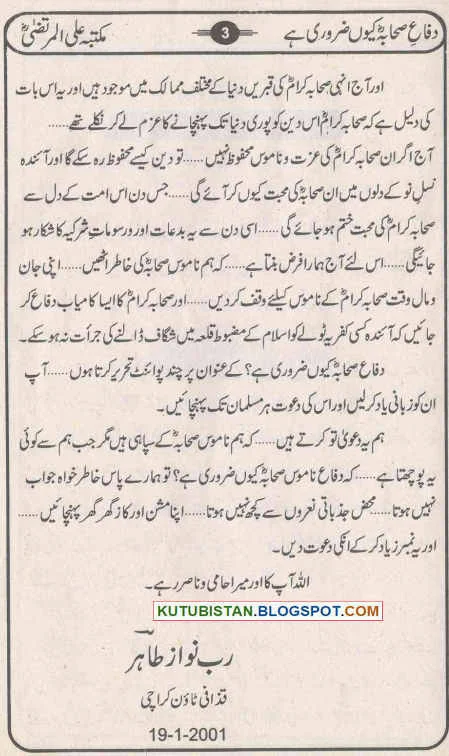 دفاعِ صحابہؓ کیوں ضروری ہے
3
مکتبہ علی المرتضیٰؓ
اور آج انہی صحابہ کرامؓ کی قبریں دنیا کے مختلف ممالک میں موجود ہیں اور یہ اس بات
کی دلیل ہے کہ صحابہ کرامؓ اس دین کو پوری دنیا تک پہنچانے کا عزم لے کر نکلے تھے......
آج اگر ان صحابہ کرامؓ کی عزت و ناموس محفوظ نہیں...... تو دین کیسے محفوظ رہ سکے گا اور آئندہ
نسلِ نو کے دلوں میں ان صحابہؓ کی محبت کیوں کر آئے گی...... جس دن اس امت کے دل سے
صحابہ کرامؓ کی محبت ختم ہو جائے گی...... اسی دن سے یہ بدعات اور رسوماتِ شرکیہ کا شکار ہو
جائیگی...... اس لئے آج ہمارا فرض بنتا ہے...... کہ ہم ناموس صحابہؓ کی خاطر اٹھیں...... اپنی جان
و مال وقت صحابہ کرامؓ کے ناموس کیلئے وقف کر دیں...... اور صحابہ کرامؓ کا ایسا کامیاب دفاع کر
جائیں کہ آئندہ کسی کفریہ ٹولے کو اسلام کے مضبوط قلعہ میں شگاف ڈالنے کی جرأت نہ ہو سکے۔
دفاع صحابہؓ کیوں ضروری ہے؟ کے عنوان پر چند پوائنٹ تحریر کرتا ہوں...... آپ
ان کو زبانی یاد کر لیں اور اس کی دعوت ہر مسلمان تک پہنچائیں۔
ہم یہ دعویٰ تو کرتے ہیں...... کہ ہم ناموس صحابہؓ کے سپاہی ہیں مگر جب ہم سے کوئی
یہ پوچھتا ہے...... کہ دفاع ناموس صحابہؓ کیوں ضروری ہے؟ تو ہمارے پاس خاطر خواہ جواب
نہیں ہوتا...... محض جذباتی نعروں سے کچھ نہیں ہوتا...... اپنا مشن اور کاز گھر گھر پہنچائیں......
اور یہ نمبرز یاد کر کے انکی دعوت دیں۔
اللہ آپ کا اور میرا حامی و ناصر رہے۔
KUTUBISTAN.BLOGSPOT.COM
رب نواز طاہر
قذافی ٹاؤن کراچی
19-1-2001